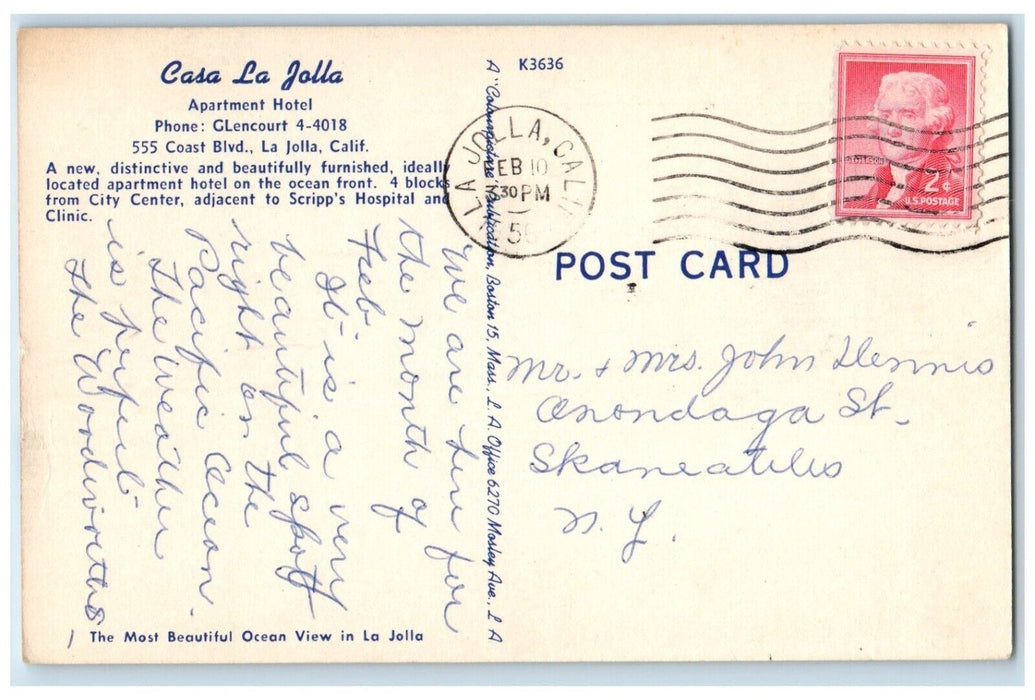 Casa La Jolla
Apartment Hotel
Phone: GLencourt 4-4018
555 Coast Blvd., La Jolla, Calif.
A new, distinctive and beautifully furnished, ideally
located apartment hotel on the ocean front. 4 blocks
from City Center, adjacent to Scripp's Hospital and
Clinic.
We are here for
the month of
Feb.
It is a very
beautiful spot
right on the
Pacific Ocean.
The weather
is perfect
The Woodworths
The Most Beautiful Ocean View in La Jolla
A "Colourpicture" Publication, Boston 15, Mass., L.A. Office 6270 Mosley Ave., L A
K3636
LA JOLLA, CALIF
FEB 10
630 PM
2¢
U.S. POSTAGE
POST CARD
Mr. + Mrs. John Dennis
Onondaga St.
Skaneateles
N.Y.